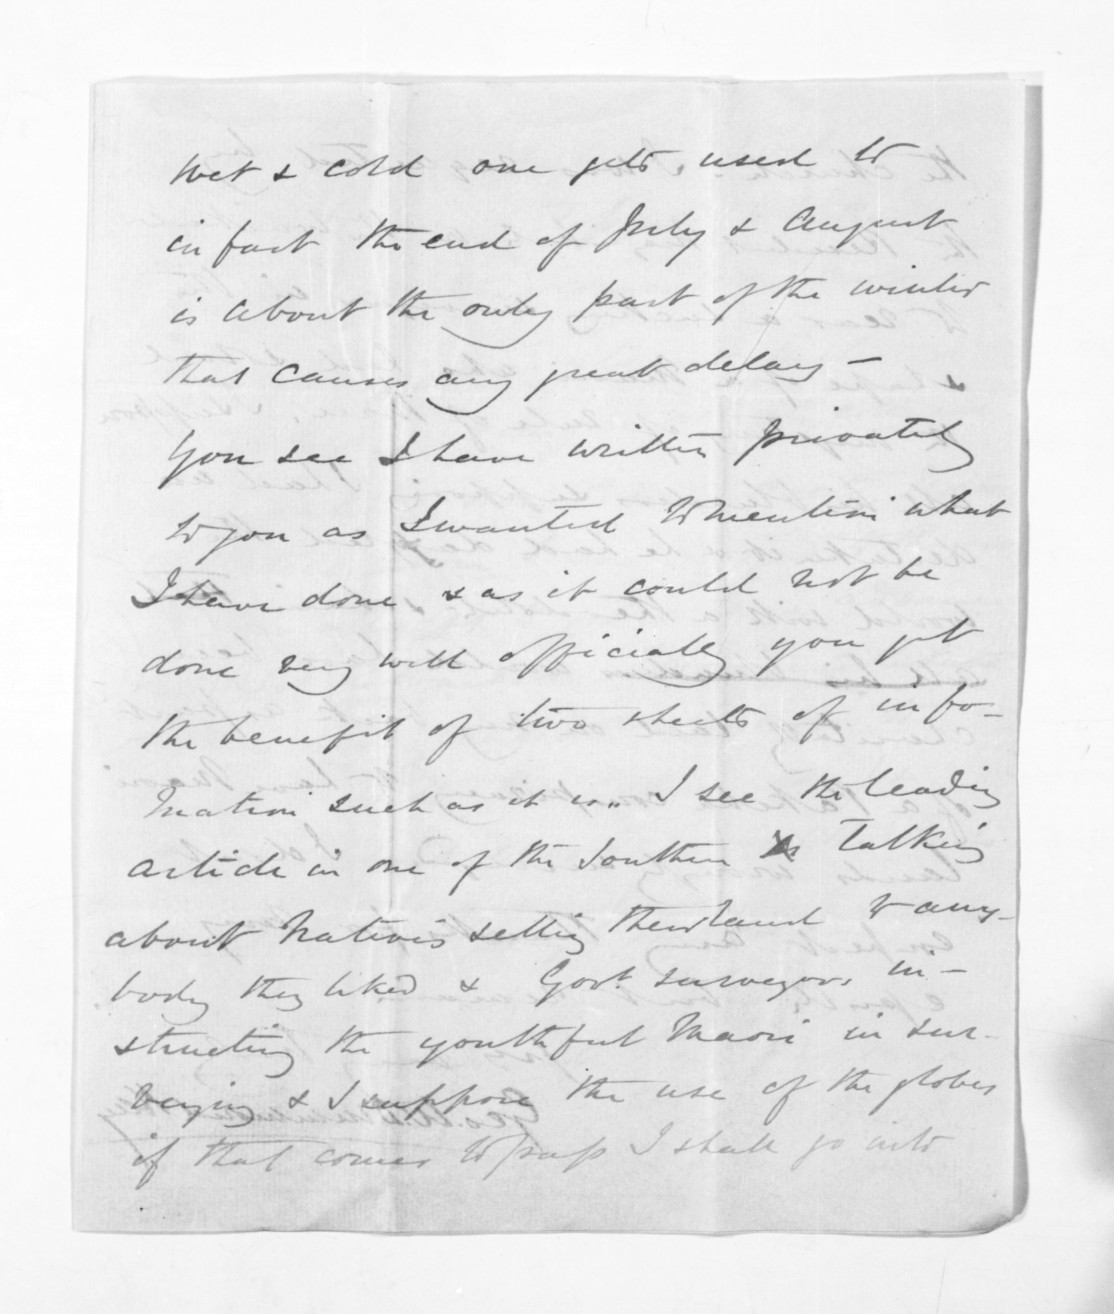 wet & cold one gets used to
in fact the end of July & August
is about the only part of the winter
that causes any great delay –
You see I have written privately
to you as I wanted to mention what
I have done & as it could not be
done very well officially you get
the benefit of two sheets of info-
mation such as it is. I see the leading
article in one of the Southern talking
about Natives selling their land to any-
body they liked & Govt. surveyors in-
structing the youthful Maori in sur-
veying & I suppose the use of the globes
if that comes to pass I shall go into